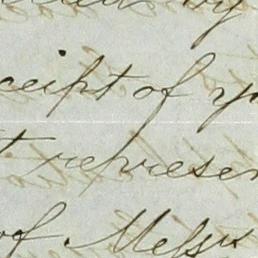 by
ceipt of yo
t represen
of. Messrs